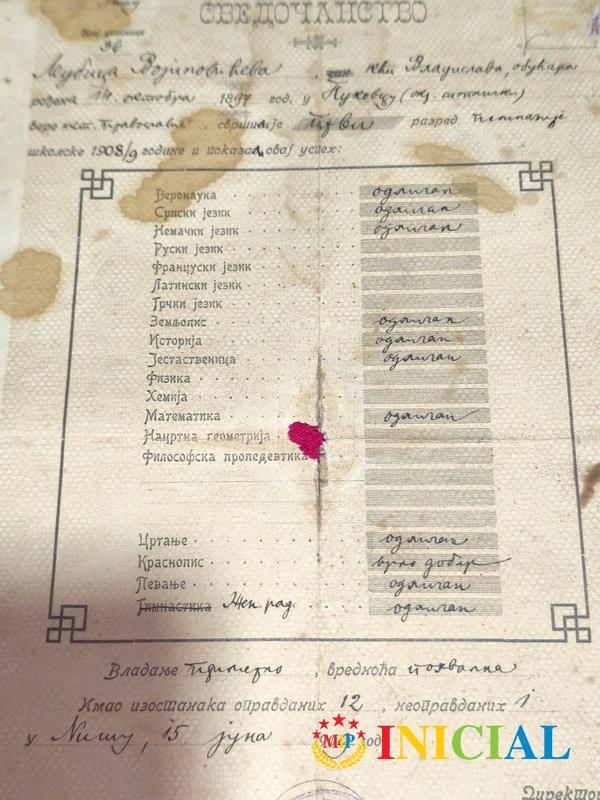 СВЕДОЧАНСТВО
36
Љубица Војиновићева, кћи Владислава, обућара
рођена 14. октобра 1897 год. у Пуковцу (окр. нишки)
вере ист. Православне, свршила је први разред Гимназије
школске 1908/9 године и показала овај успех:
Веронаука одличан
Српски језик одличан
Немачки језик одличан
Руски језик
Француски језик
Латински језик
Грчки језик
Земљопис одличан
Историја одличан
Јестаственица одличан
Физика
Хемија
Математика одличан
Нацртна геометрија
Философска пропедевтика
Цртање одличан
Краснопис врло добар
Певање одличан
Гимнастика Жен. рад. одличан
Владање примерно, вредноћа похвална
Имао изостанака оправданих 12, неоправданих 1
у Нишу, 15 јуна год
МР INICIAL
Директор